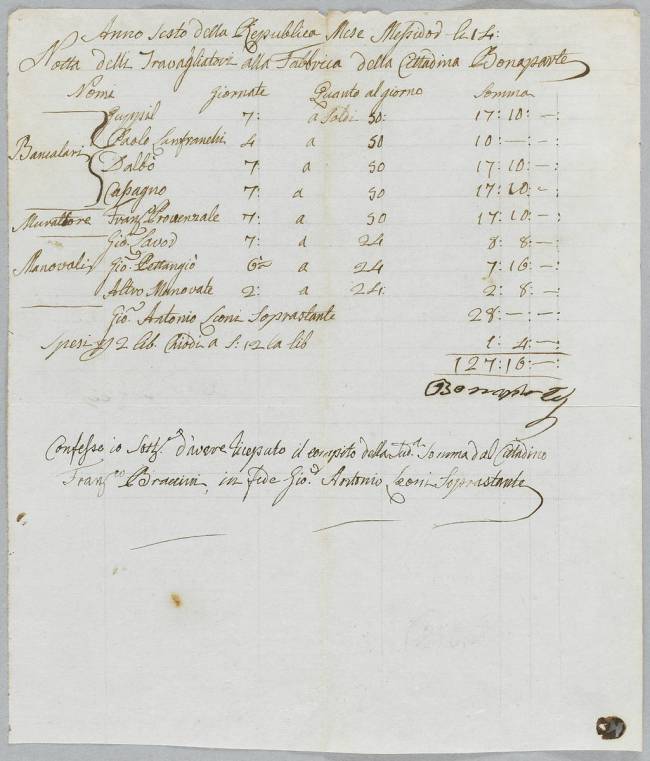 Anno Sesto della Republica Mese Messidod le 14:
Notta delli Travagliatori alla Fabbrica della Cittadina Bonaparte
Nomi Giornate Quanto al giorno Somma
7: a Soldi 50: 17: 10: —:
Paolo Lanfranchi 4 a 50 10: —: —:
Bancalari
Dalbò 7 a 50 17: 10: —:
Capagno 7: a 50 17: 10: —:
Murattore Franco. Provenzale 7: a 50 17: 10: —:
Gio. Savod 7: a 24 8: 8: —:
Manovali Gio. Pettangiò 6: a 24 7: 16: —:
Altro Manovale 2: a 24: 2: 8: —:
Gio. Antonio Leoni Soprastante 28: —: —:
Spesi p 2 lib. Chiodi a S: 12 la lib 1: 4: —:
127: 16: —:
Bonaparte
Confesso io Sotts. d'avere riceputo il compito della Sud.a Somma dal Cittadino
Franco Braccini, in fede Gio. Antonio Leoni Soprastante